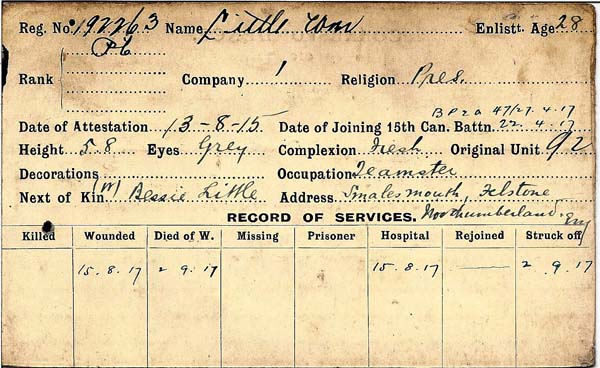 Reg. No. 192263 Name Little Tom Enlistt. Age 28
Pte
Rank Company 1 Religion Pres.
B P 2 0 47/27.4.17
Date of Attestation 13-8-15 Date of Joining 15th Can. Battn. 22.4.17
Height 5.8 Eyes Grey Complexion Fresh Original Unit 92
Decorations Occupation Teamster
Next of Kin (M) Bessie Little Address Smalesmouth, Felstone
RECORD OF SERVICES. Northumberland. Eng
Killed Wounded Died of W. Missing Prisoner Hospital Rejoined Struck off
15.8.17 2 9.17 15.8.17 2 9.17